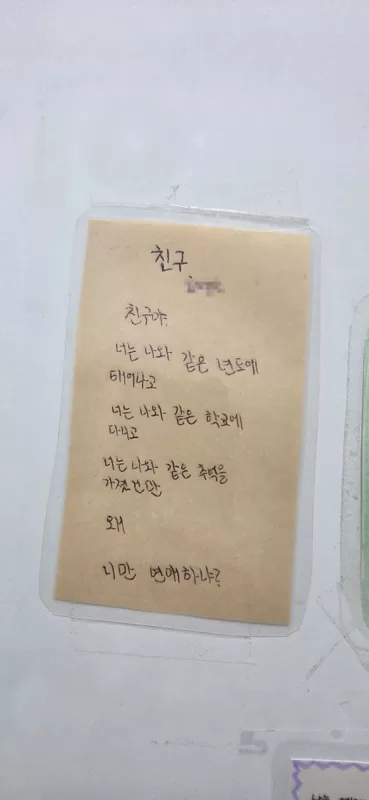 친구
친구야.
너는 나와 같은 년도에
태어나고
너는 나와 같은 학교에
다니고
너는 나와 같은 추억을
가졌건만
왜
니만 연애하냐?